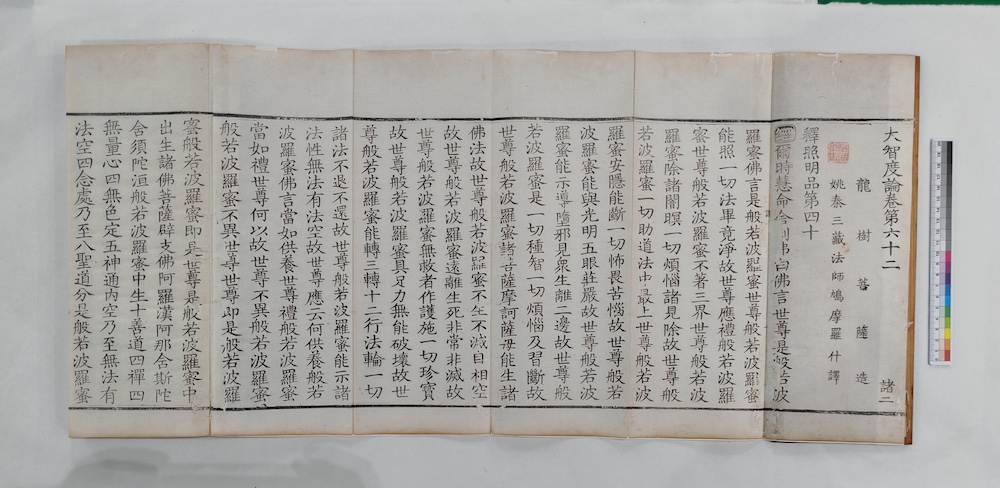 大智度論卷第六十二 諸二
龍樹菩薩造
姚秦三藏法師鳩摩羅什譯
釋照明品第四十
經爾時慧命舍利弗白佛言世尊是般若波
羅蜜佛言是般若波羅蜜世尊般若波羅蜜
能照一切法畢竟淨故世尊應禮般若波羅
蜜世尊般若波羅蜜不著三界世尊般若波
羅蜜除諸闇暝一切煩惱諸見除故世尊般
若波羅蜜一切助道法中最上世尊般若波
羅蜜安隱能斷一切怖畏苦惱故世尊般若
波羅蜜能與光明五眼莊嚴故世尊般若波
羅蜜能示導墮邪見衆生離二邊故世尊般
若波羅蜜是一切種智一切煩惱及習斷故
世尊般若波羅蜜諸菩薩摩訶薩母能生諸
佛法故世尊般若波羅蜜不生不滅自相空
故世尊般若波羅蜜遠離生死非常非滅故
世尊般若波羅蜜無救者作護施一切珍寶
故世尊般若波羅蜜具足力無能破壞故世
尊般若波羅蜜能轉三轉十二行法輪一切
諸法不退不還故世尊般若波羅蜜能示諸
法性無法有法空故世尊應云何供養般若
波羅蜜佛言當如供養世尊禮般若波羅蜜
當如禮世尊何以故世尊不異般若波羅蜜
般若波羅蜜不異世尊世尊即是般若波羅
蜜般若波羅蜜即是世尊是般若波羅蜜中
出生諸佛菩薩辟支佛阿羅漢阿那含斯陀
含須陀洹般若波羅蜜中生十善道四禪四
無量心四無色定五神通內空乃至無法有
法空四念處乃至八聖道分是般若波羅蜜